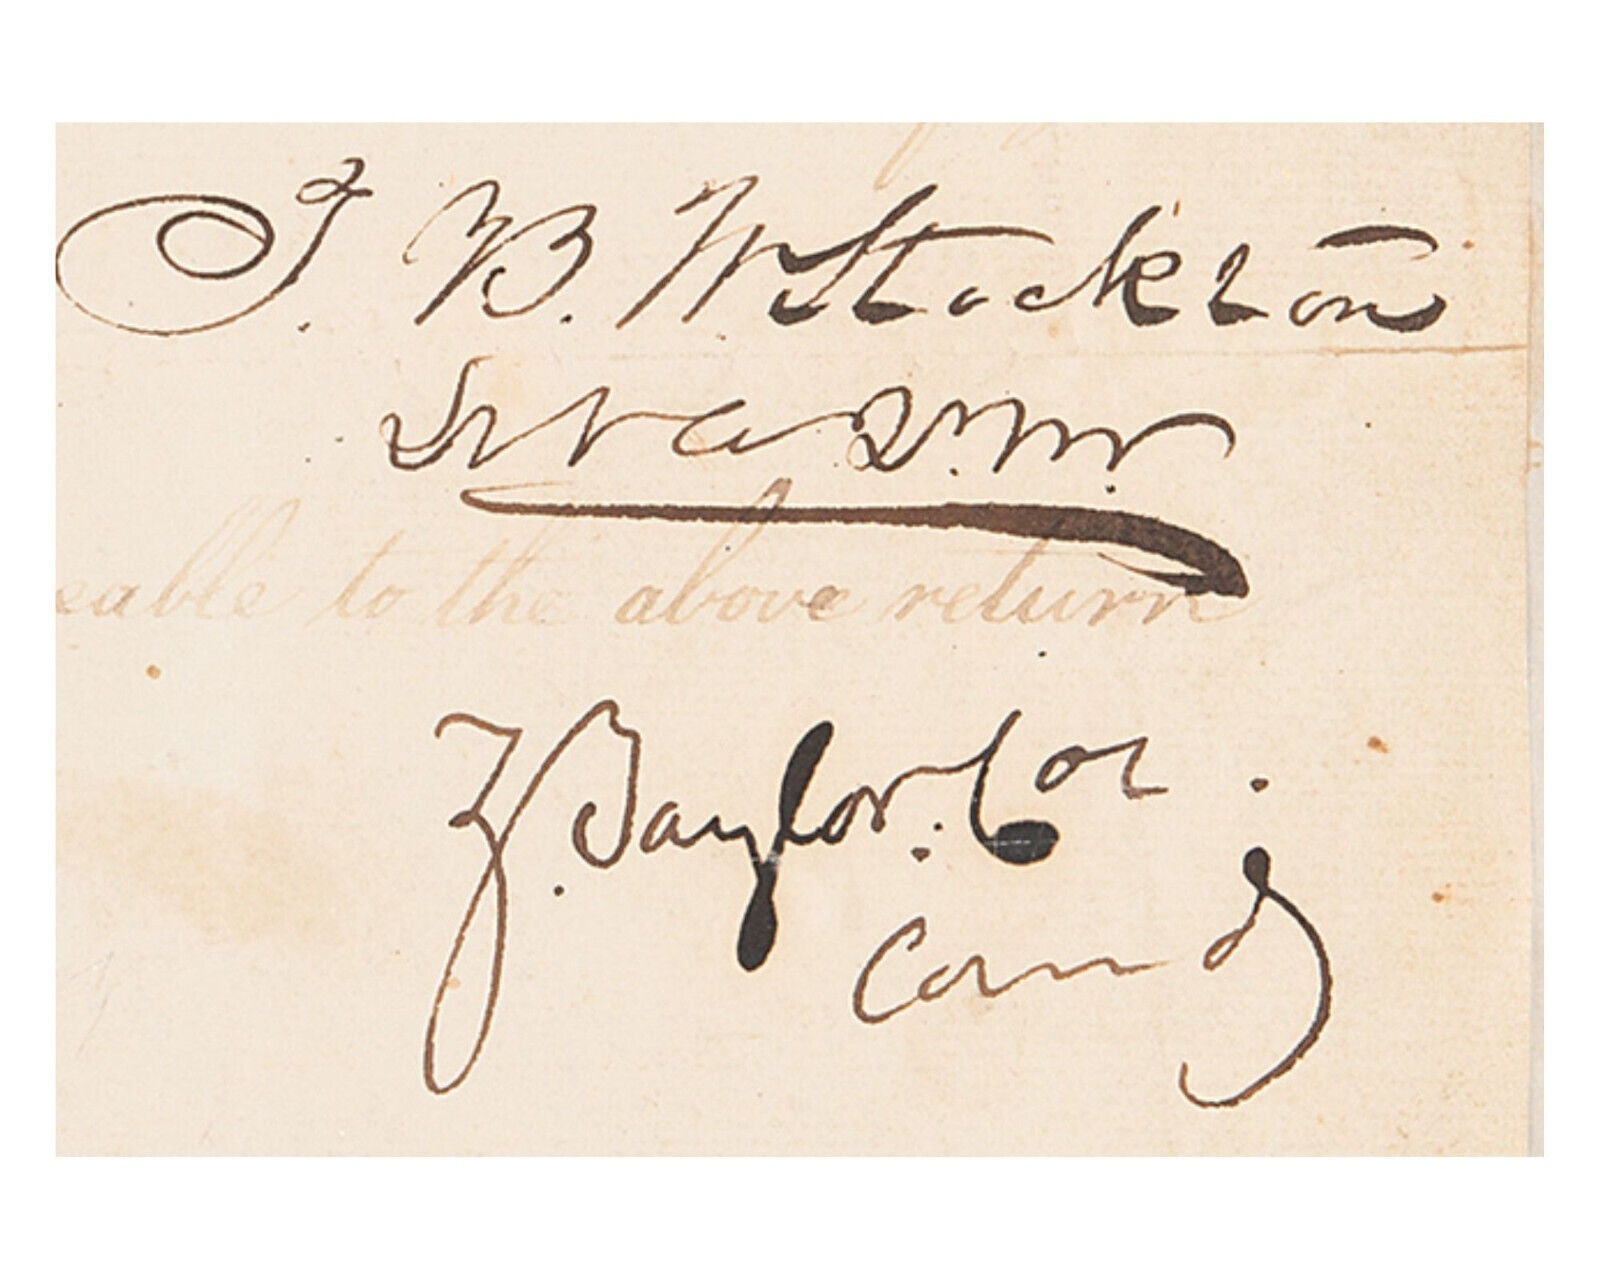 T. B. W. Stockton
Lt & a. Q. M.
eable to the above return
Z. Taylor. Col.
Comdg